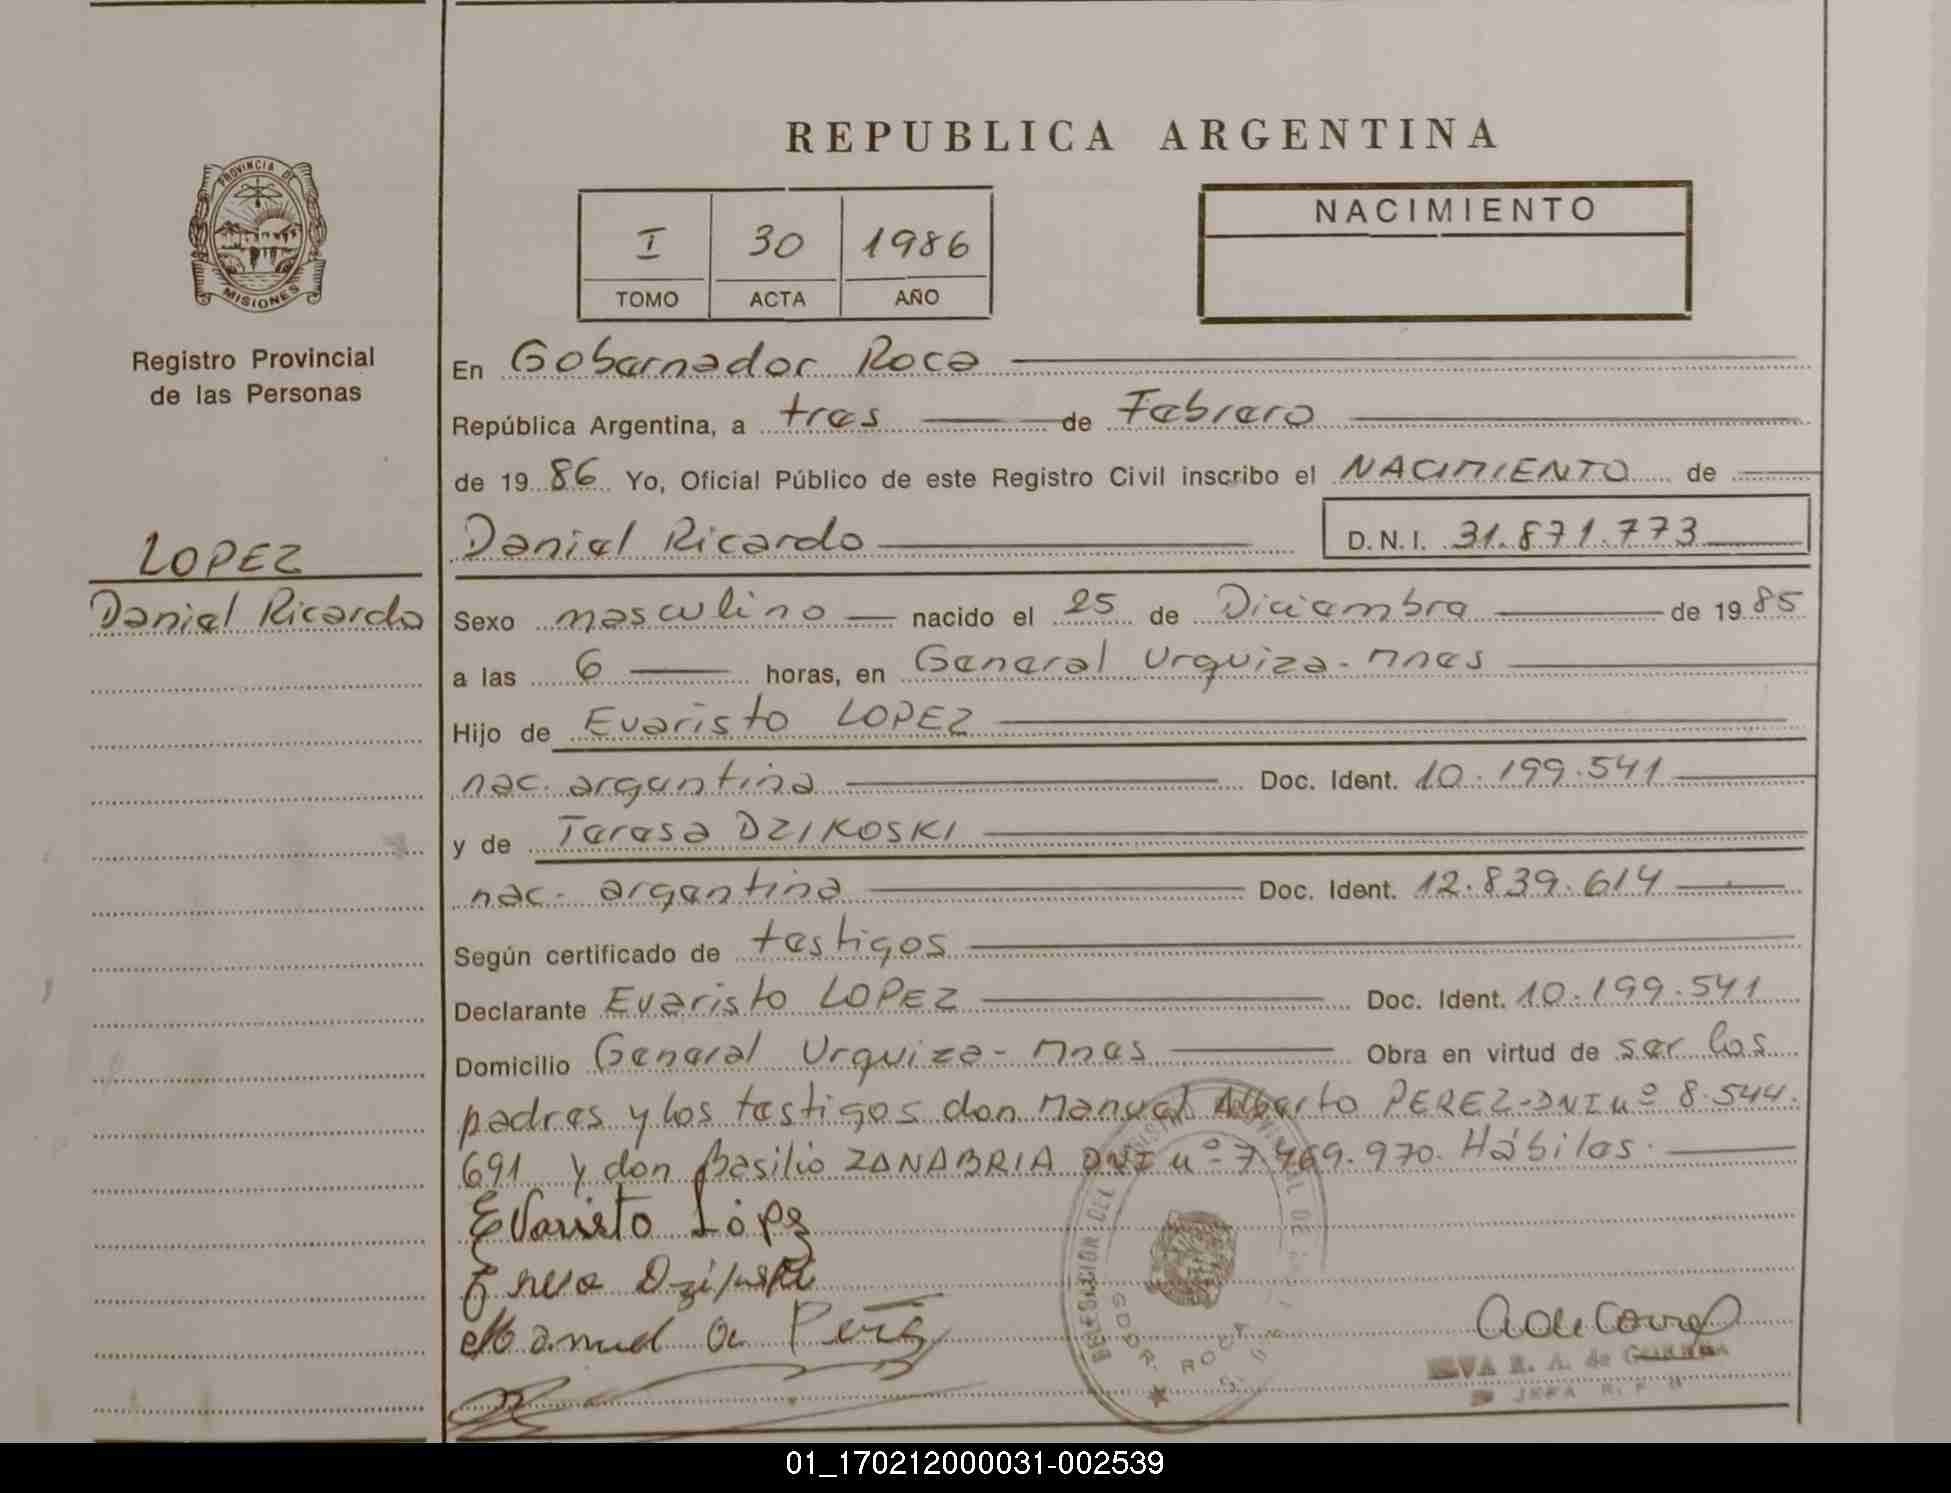 REPUBLICA ARGENTINA
PROVINCIA DE
MISIONES
Registro Provincial
de las Personas
I 30 1986
TOMO ACTA AÑO
NACIMIENTO
En Gobernador Roca
República Argentina, a tres de Febrero
de 1986 Yo, Oficial Público de este Registro Civil inscribo el NACIMIENTO de
LOPEZ
Daniel Ricardo
Daniel Ricardo D.N.I. 31.871.773
Sexo masculino nacido el 25 de Diciembre de 1985
a las 6 horas, en General Urquiza - Mnes
Hijo de Evaristo LOPEZ
nac. argentina Doc. Ident. 10.199.541
y de Teresa DZIKOSKI
nac. argentina Doc. Ident. 12.839.614
Según certificado de testigos
Declarante Evaristo LOPEZ Doc. Ident. 10.199.541
Domicilio General Urquiza - Mnes Obra en virtud de ser los
padres y los testigos don Manuel Alberto PEREZ - DNI nº 8.544.
691 y don Basilio ZANABRIA DNI nº 7.469.970. Hábiles.
Evaristo López
DELEGACION DEL
GDOR. ROCA
de
JEFA
01_170212000031-002539